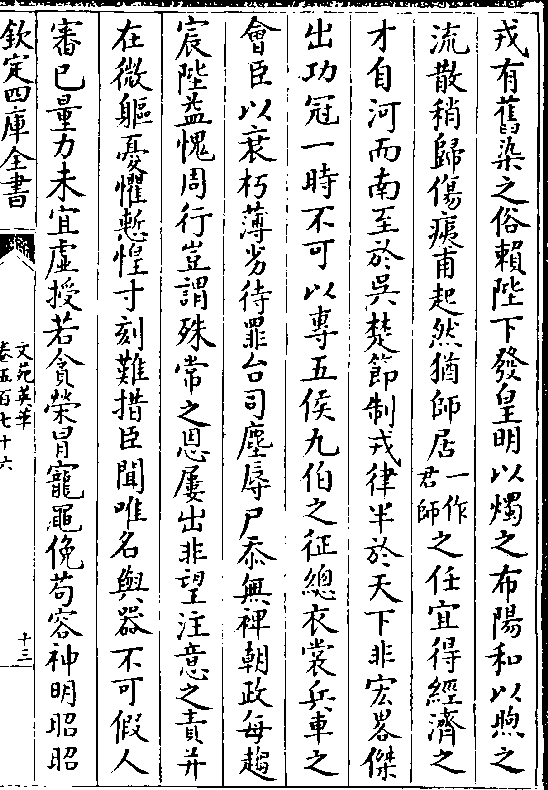 戎有舊染之俗賴陛下發皇明以燭之布陽和以煦之
流散稍歸傷痍甫起然猶師居一作君師之任宜得經濟之
才自河而南至於吳楚節制戎律半於天下非宏畧傑
出功冠一時不可以專五侯九伯之征總衣裳兵車之
會臣以衰朽薄劣待罪台司塵辱尸忝無裨朝政每趨
宸陛益愧周行豈謂殊常之恩屢出非望注意之責并
在微軀憂懼慙惶寸刻難措臣聞唯名與器不可假人
審已量力未宜虛授若貪榮冒寵黽俛苟容神明昭昭
欽定四庫全書
文苑英華
卷五百七十六
十三